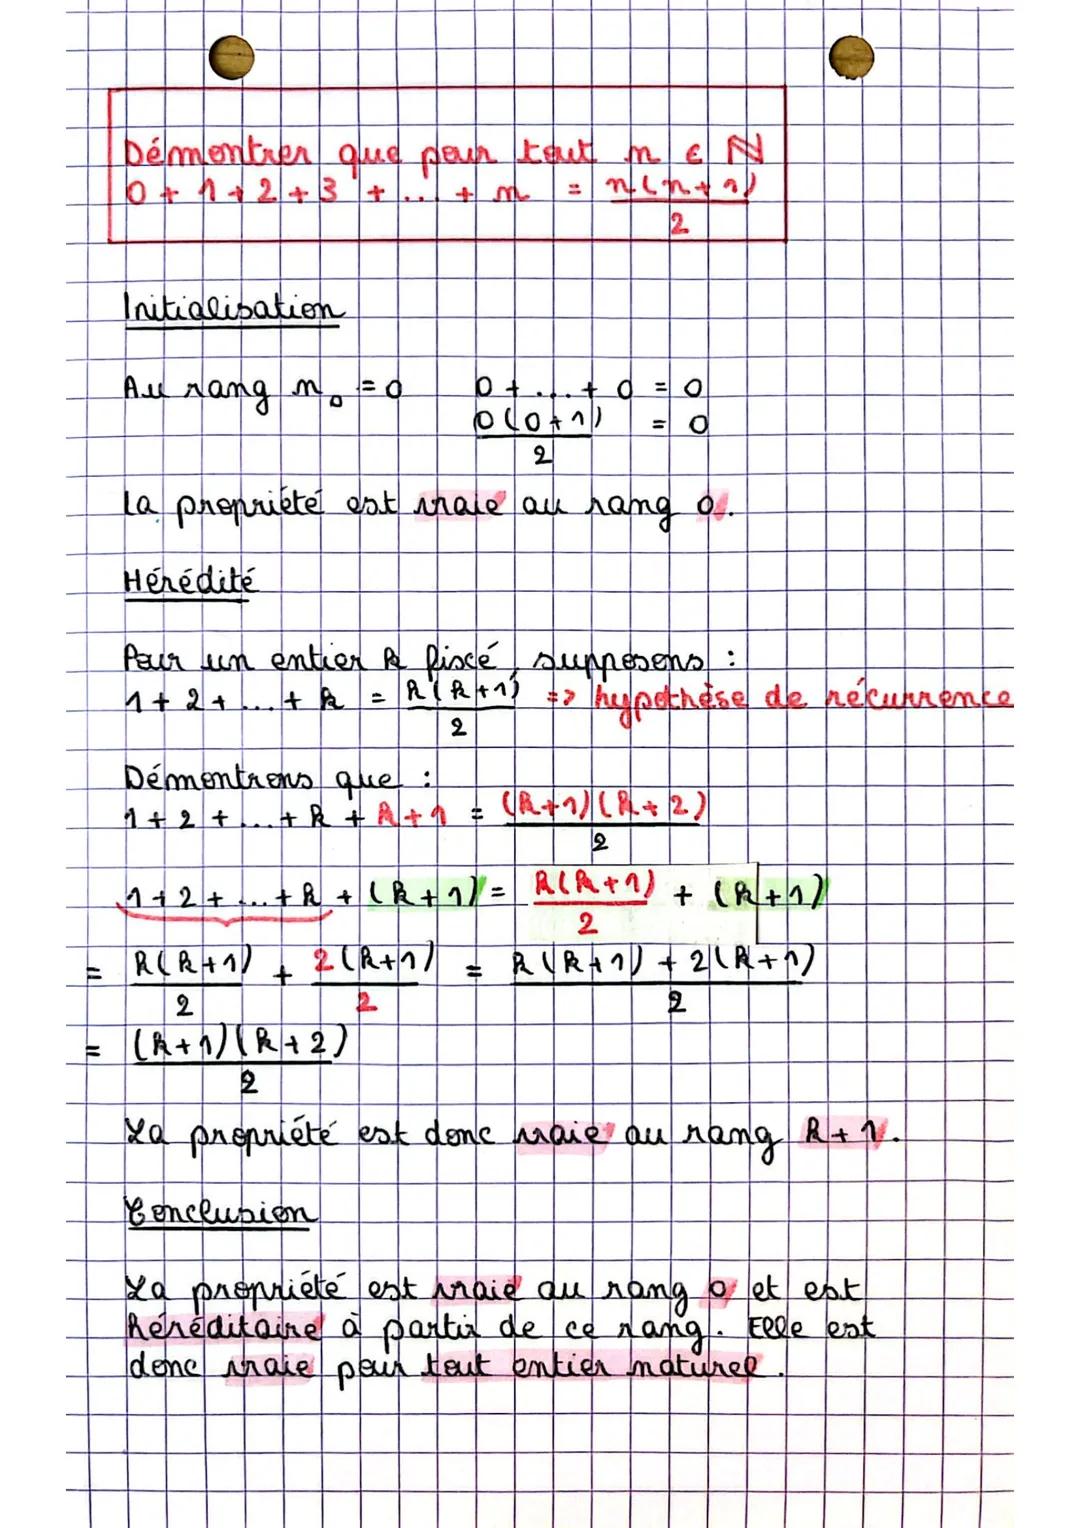 Démontrer que pour tout n ∈ ℕ
0 + 1 + 2 + 3 + ... + n = n(n+1)/2
Initialisation
Au rang n₀ = 0 0 + ... + 0 = 0
0(0+1)/2 = 0
La propriété est vraie au rang 0.
Hérédité
Pour un entier k fixé, supposons :
1 + 2 + ... + k = k(k+1)/2 => hypothèse de récurrence
Démontrons que :
1 + 2 + ... + k + k+1 = (k+1)(k+2)/2
1 + 2 + ... + k + (k+1) = k(k+1)/2 + (k+1)
= k(k+1)/2 + 2(k+1)/2 = k(k+1) + 2(k+1)/2
= (k+1)(k+2)/2
La propriété est donc vraie au rang k+1.
Conclusion
La propriété est vraie au rang 0 et est
héréditaire à partir de ce rang. Elle est
donc vraie pour tout entier naturel.